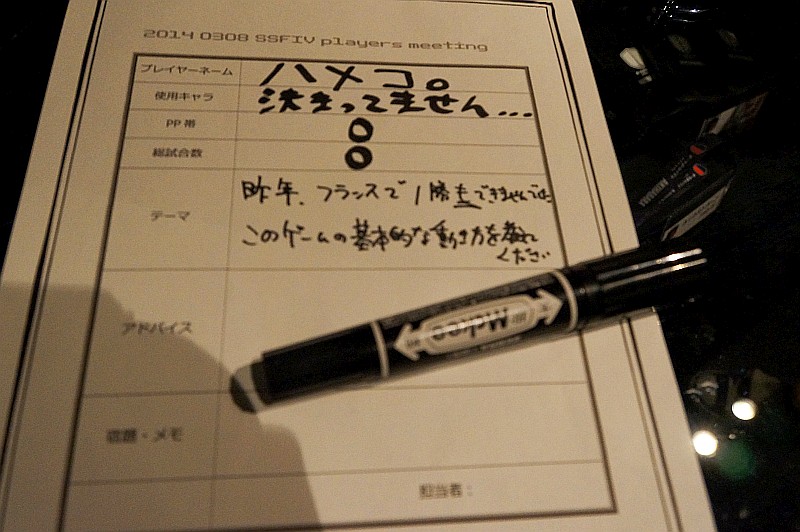 2014 0308 SSFIV players meeting
プレイヤーネーム ハメコ。
使用キャラ 決まってません…
PP帯 0
総試合数 0
テーマ 昨年、フランスで1勝もできませんでした
このゲームの基本的な動き方を教えて
ください
アドバイス
Mckee
宿題・メモ
担当者：